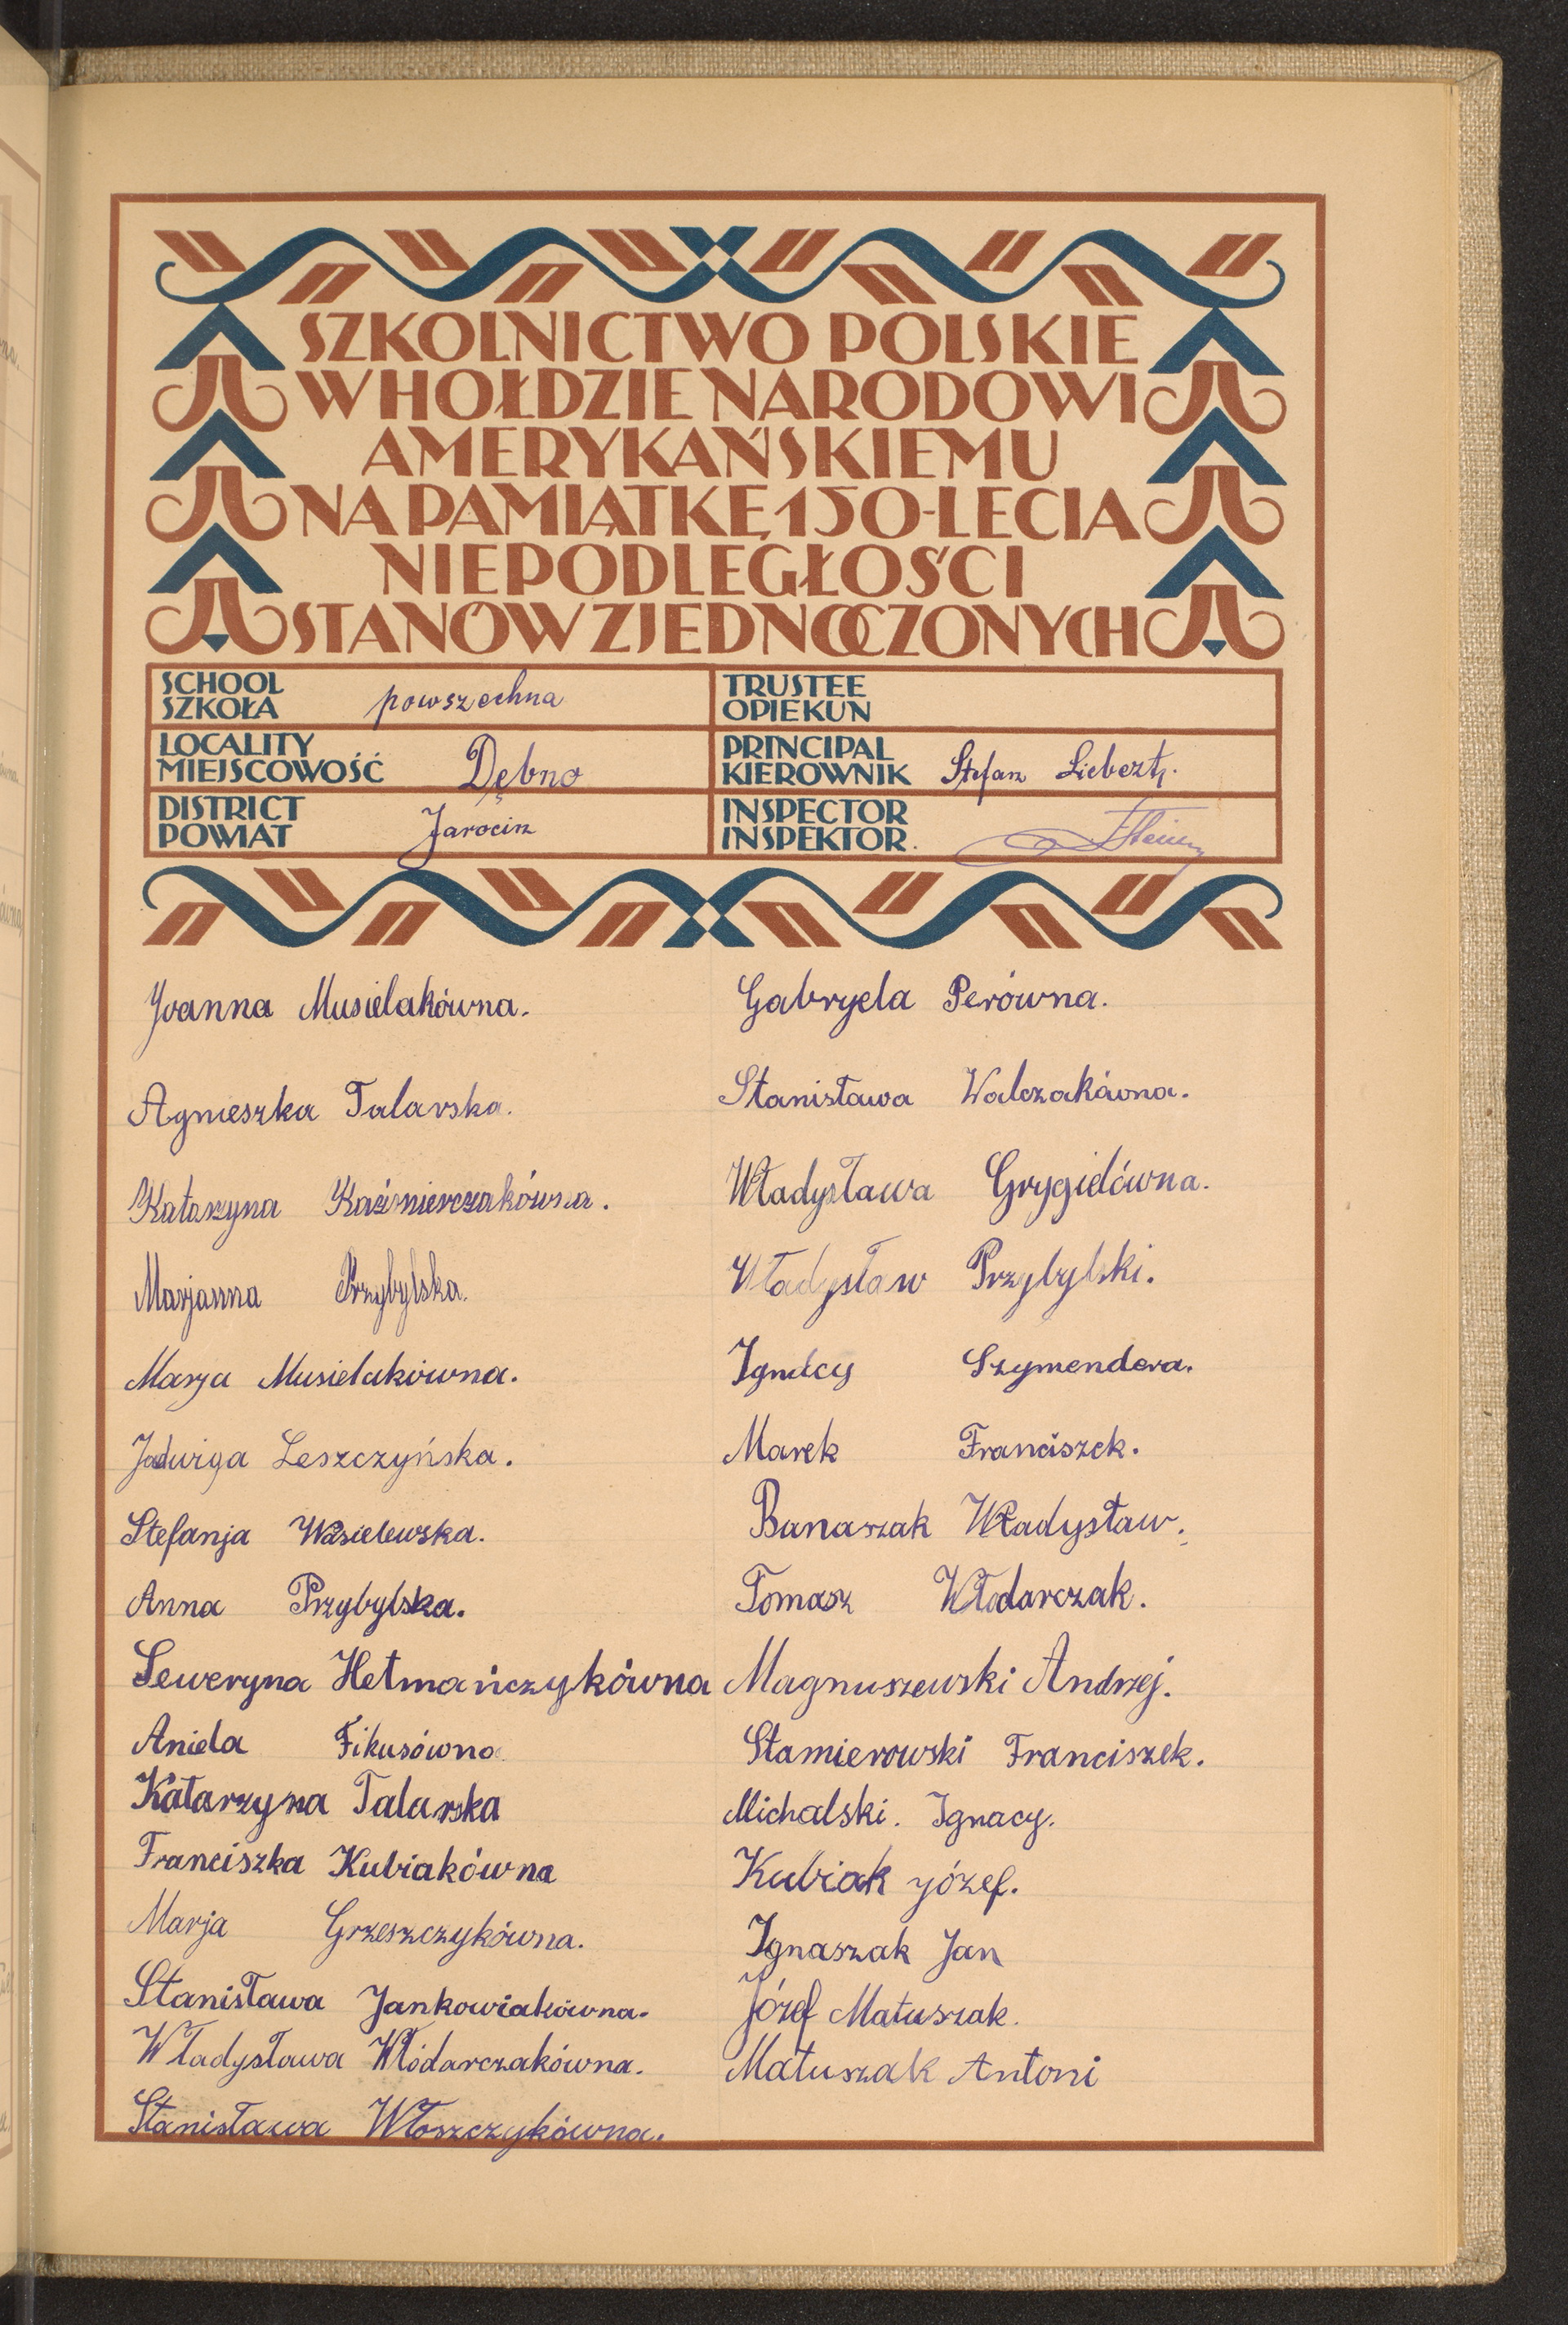 SZKOLNICTWO POLSKIE
W HOŁDZIE NARODOWI
AMERYKAŃSKIEMU
NA PAMIĄTKĘ 150-LECIA
NIEPODLEGŁOŚCI
STANÓW ZJEDNOCZONYCH
SCHOOL
SZKOŁA powszechna
TRUSTEE
OPIEKUN
LOCALITY
MIEJSCOWOŚĆ Dębno
PRINCIPAL
KIEROWNIK Stefan
DISTRICT
POWIAT Jarocin
INSPECTOR
INSPEKTOR.
Joanna Musielakówna.
Agnieszka Talarska.
Katarzyna Kaźmierczakówna.
Marjanna Przybylska.
Marja Musielakówna.
Jadwiga Leszczyńska.
Stefanja Wasielewska.
Anna Przybylska.
Seweryna Hetmańczykówna
Aniela Fikusówna
Katarzyna Talarska
Franciszka Kubiakówna
Marja Grzeszczykówna.
Stanisława Jankowiakówna.
Władysława Włódarczakówna.
Stanisława Włoszczykówna.
Gabryela Perówna.
Stanisława Walczakówna.
Władysława Grygielówna.
Władysław Przybylski.
Ignacy Szymendera.
Marek Franciszek.
Banaszak Władysław.
Tomasz Włodarczak.
Magnuszewski Andrzej.
Stamierowski Franciszek.
Michalski. Ignacy.
Kubiak Józef.
Ignaszak Jan
Józef Matuszak.
Matuszak Antoni